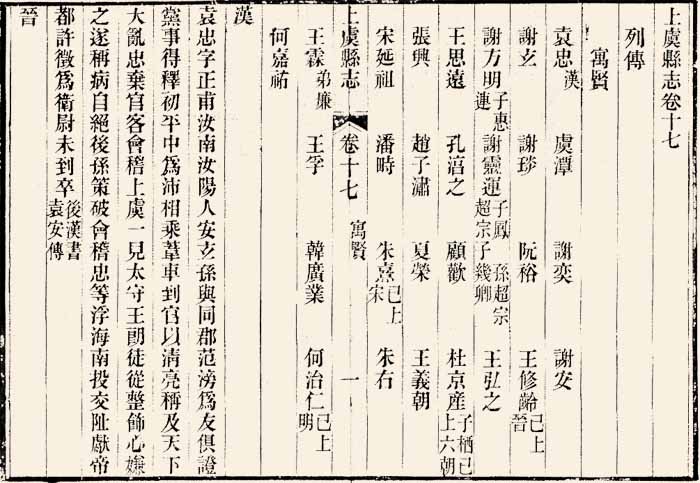 上虞縣志卷十七
列傳
寓賢
袁忠漢 虞潭 謝奕 謝安
謝玄 謝琰 阮裕 王修齡已上晉
謝方明子惠連 謝靈運子鳳孫超宗超宗子幾卿 王弘之
王思遠 孔湻之 顧歡 杜京產子栖已上六朝
張興 趙子潚 夏榮 王義朝
宋延祖 潘時 朱熹已上宋 朱右
上虞縣志 卷十七 寓賢 一
王霖弟廉 王孚 韓廣業 何治仁已上明
何嘉祐
漢
袁忠字正甫汝南汝陽人安玄孫與同郡范滂爲友俱證
黨事得釋初平中爲沛相乘葦車到官以淸亮稱及天下
大亂忠棄官客會稽上虞一見太守王朗徒從整飾心嫌
之遂稱病自絕後孫策破會稽忠等浮海南投交阯獻帝
都許徵爲衛尉未到卒後漢書袁安傳
晉